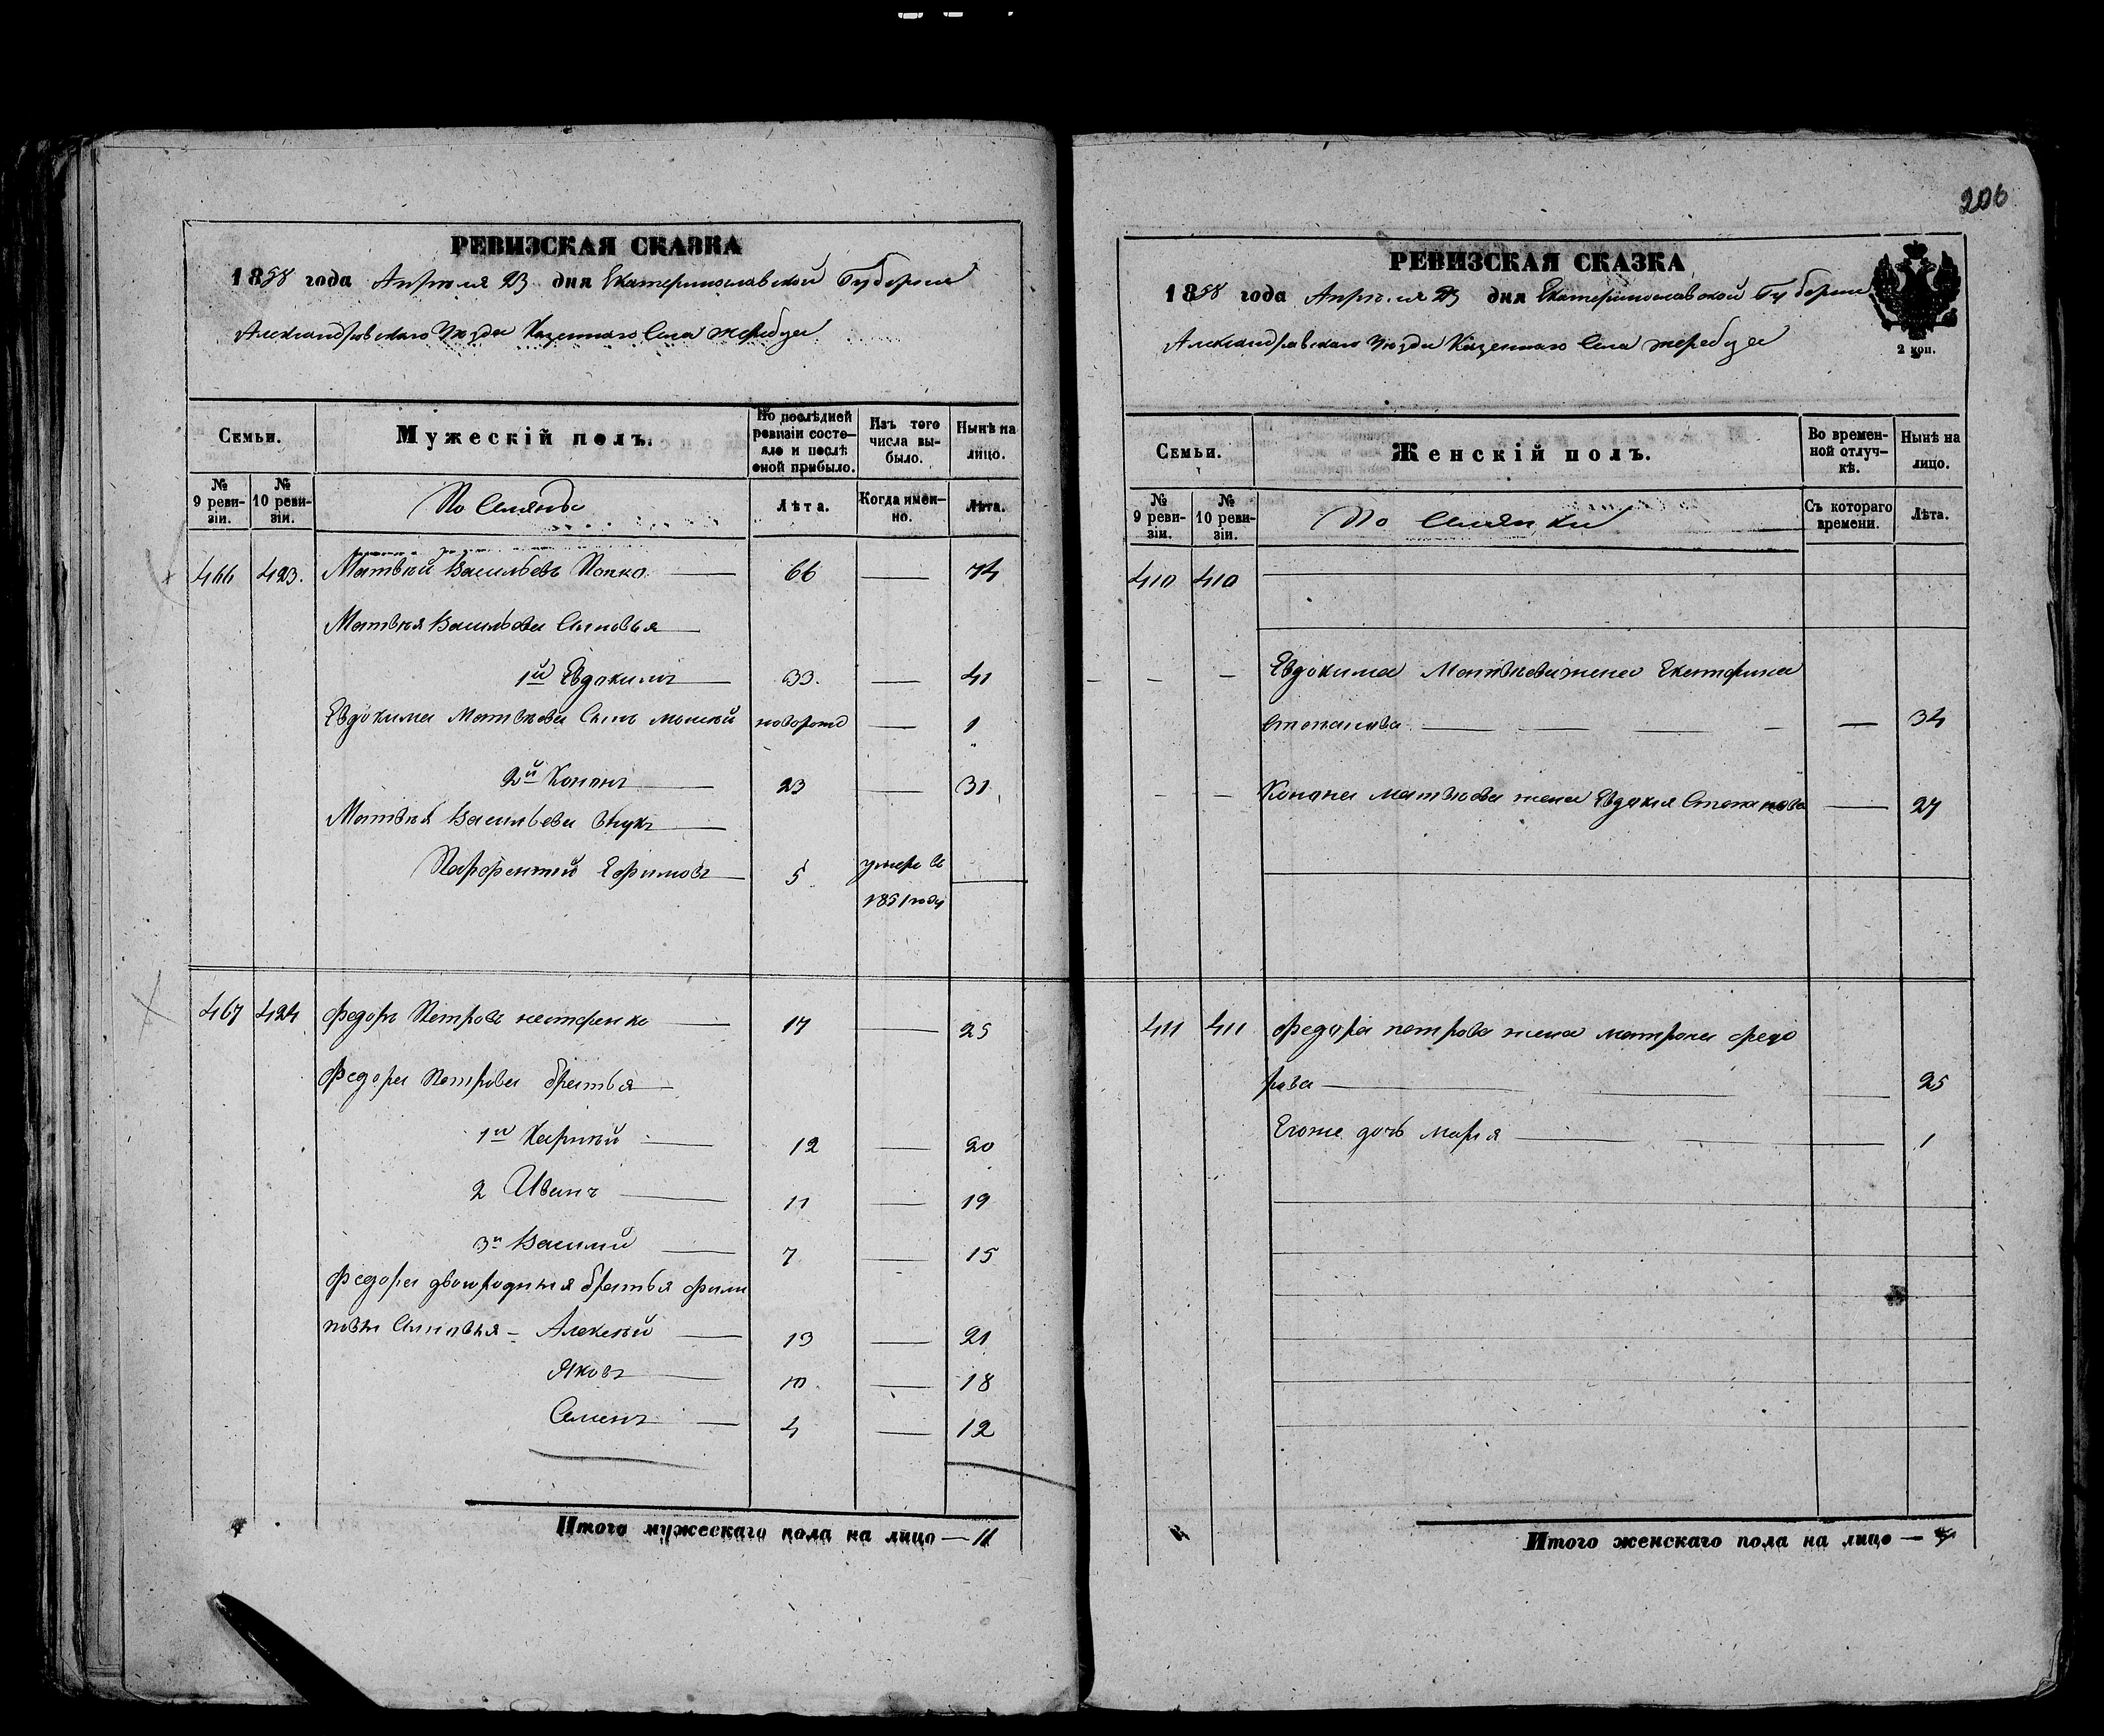 206
РЕВИЗСКАЯ СКАЗКА
1858 года Апреля 23 дня Екатеринославской Губернии
Александровскаго Уезда Казеннаго Села Жеребца
Семьи.
Мужескій полъ.
По послѣдней ревизіи состояло и послѣ оной прибыло.
Изъ того числа выбыло.
Нынѣ на лицо.
№ 9 ревизіи.
№ 10 ревизіи.
Поселяне
Лѣта.
Когда именно.
Лѣта.
466 423. Матвѣй Васильевъ Попко 66 — 74
Матвѣя Васильева Сыновья
1й Евдокимъ 33. — 41
Евдокима Матвѣева Сынъ новорожд — 1
2й Кононъ 23 — 31
Матвѣя Васильева внукъ
Парфентий Ефимовъ 5 умеръ въ
1851 году
467 424 Федоръ Петровъ 17 — 25
Федора Петрова братья
1й 12 — 20
2 Иванъ 11 — 19
3й Василий 7 — 15
Федора двоюродныя братья Фили
повы Сыновья – Алексѣй 13 — 21
Яковъ 10 — 18
Семенъ 4 — 12
Итого мужескаго пола на лицо — 11
РЕВИЗСКАЯ СКАЗКА
1858 года Апреля 23 дня Екатеринославской Губернии
Александровскаго Уезда Казеннаго Села Жеребца
2 коп.
Семьи.
Женскій полъ.
Во временной отлучкѣ.
Нынѣ на лицо.
№ 9 ревизіи.
№ 10 ревизіи.
Поселянки
Съ котораго времени.
Лѣта.
410 410
Евдокима Матвѣева жена Екатерина
Степанова — 34
Конона Матвѣева жена Евдокия Степанова — 27
411 411 Федора Петрова жена Матрона Федо
рова — 25
Егоже дочь Мария — 1
Итого женскаго пола на лицо —